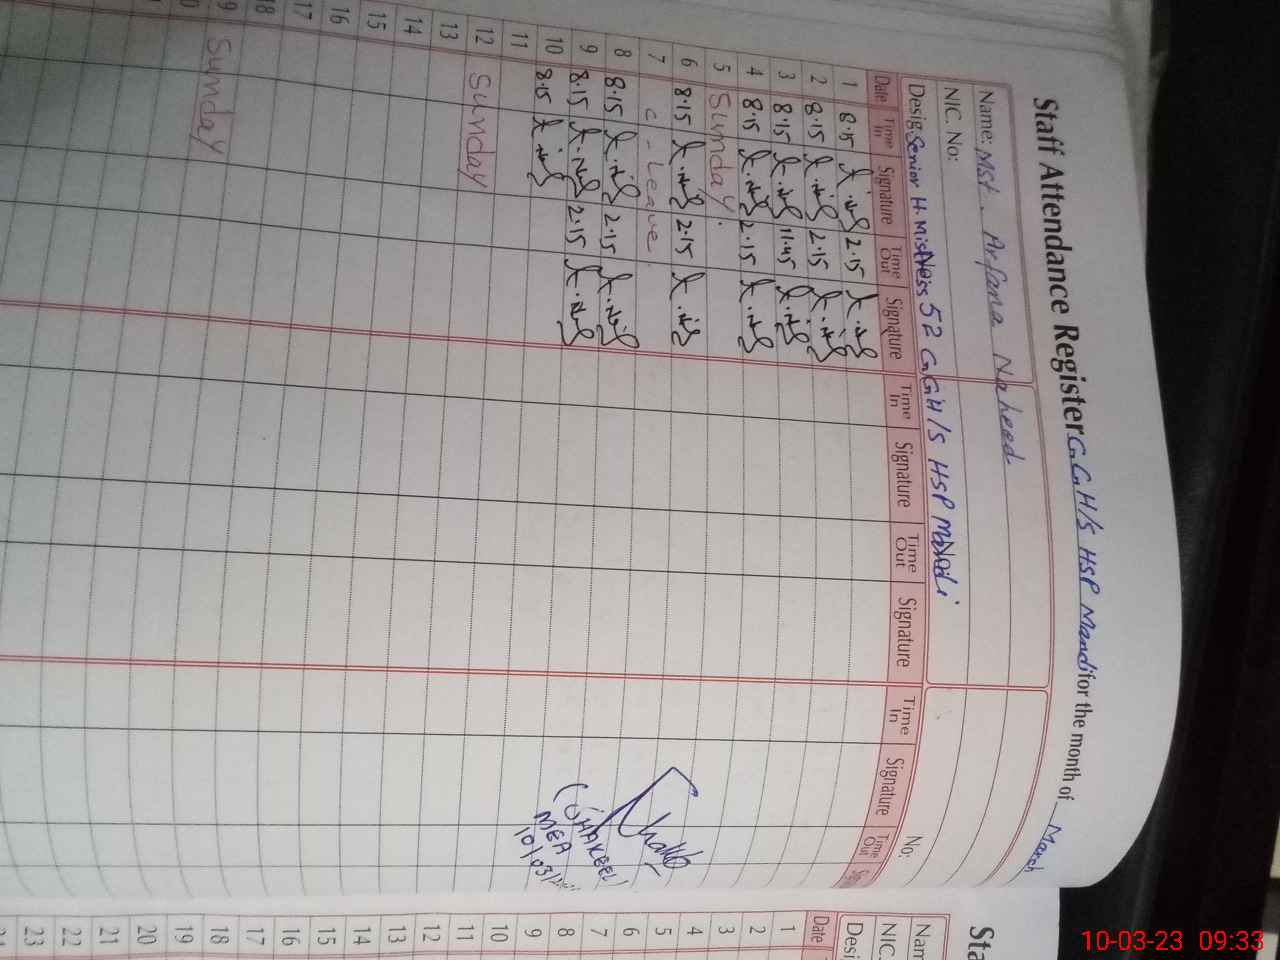 Staff Attendance Register G.G.H/S HSP Mandi for the month of March
Name: Mst. Arfana Naheed
NIC. No: No:
Desig: Senior H. Mistress 52 G.G.H/S HSP Mandi
Date Time In Signature Time Out Signature Time In Signature Time Out Signature Time In Signature Time Out
1 8.15 2.15
2 8.15 2.15
3 8.15 11.45
4 8.15 2.15
5 Sunday.
6 8.15 2.15
7 C. Leave.
8 8.15 2.15
9 8.15 2.15
10 8.15
11
12 Sunday
13
14
15
16
17
18
9 Sunday
(SHAKEEL)
MEA
10/03/
Sta
Nam
NIC.
Desi
Date
1
2
3
4
5
6
7
8
9
10
11
12
13
14
15
16
17
18
19
20
21
22
23
10-03-23 09:33